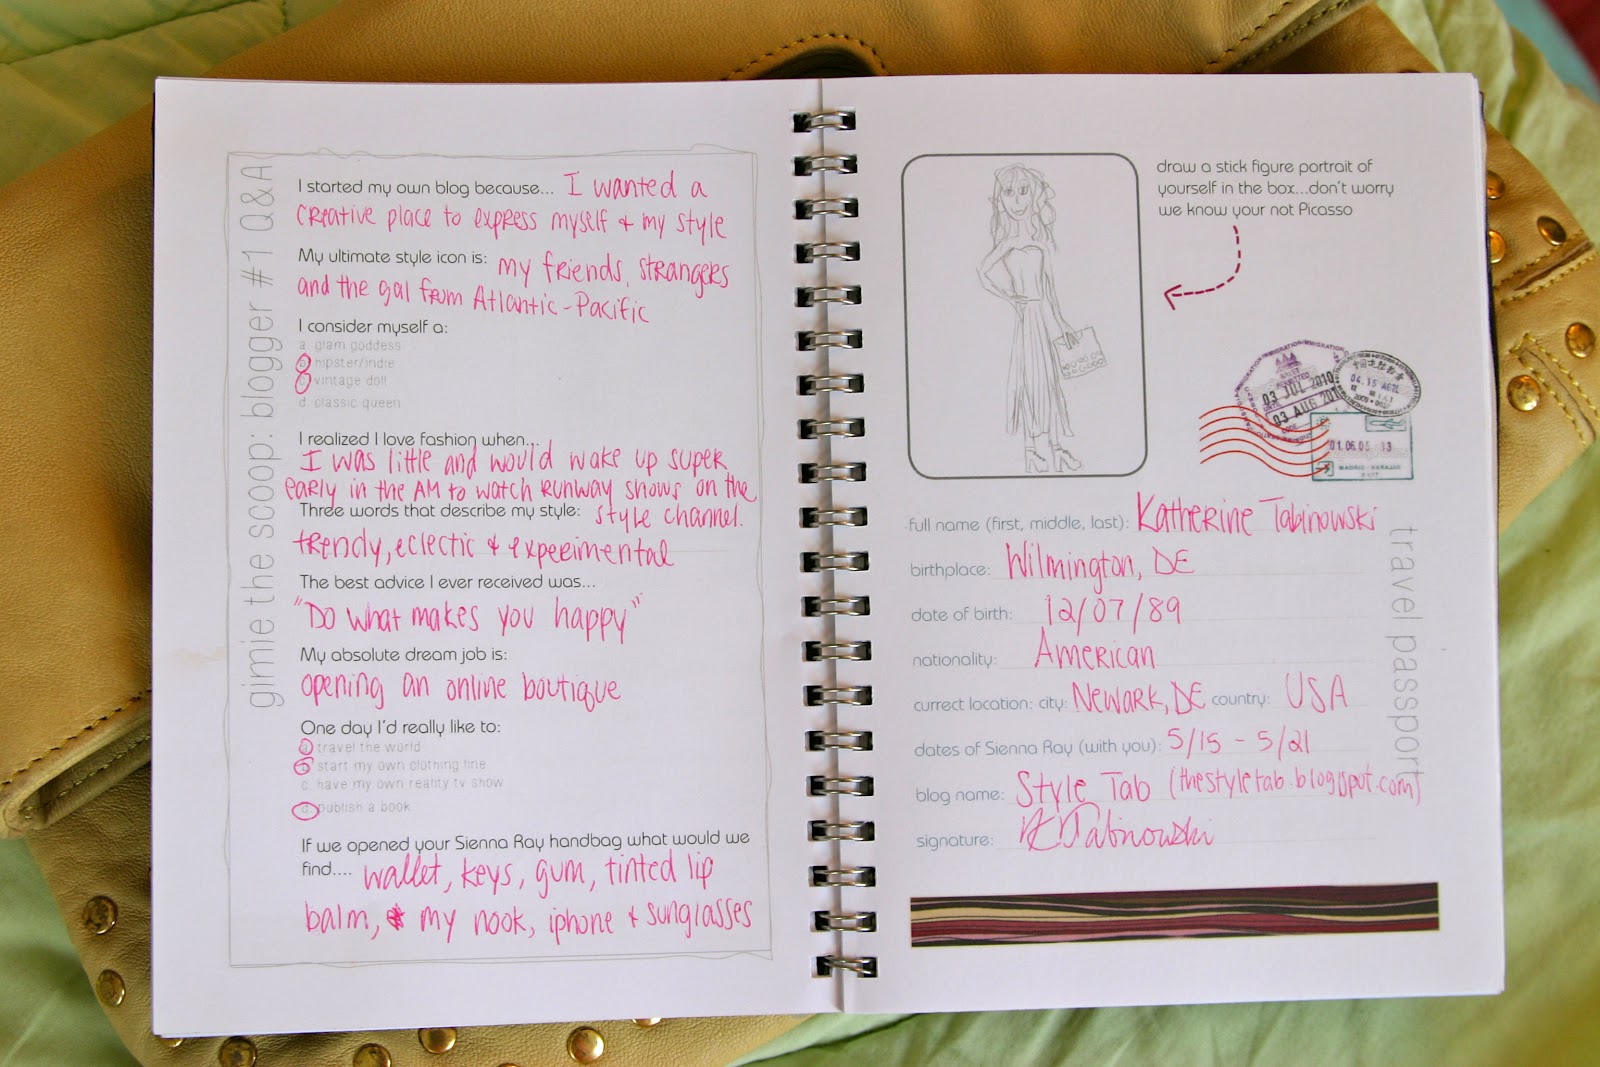 gimie the scoop: blogger #1 Q&A
I started my own blog because... I wanted a
creative place to express myself + my style
My ultimate style icon is: my friends, strangers
and the gal from Atlantic-Pacific
I consider myself a:
a. glam goddess
b. hipster/indie
c. vintage doll
d. classic queen
I realized I love fashion when...
I was little and would wake up super
early in the AM to watch runway shows on the
style channel.
Three words that describe my style:
trendy, eclectic & experimental
The best advice I ever received was...
"Do what makes you happy"
My absolute dream job is:
opening an online boutique
One day I'd really like to:
a. travel the world
b. start my own clothing line
c. have my own reality tv show
d. publish a book
If we opened your Sienna Ray handbag what would we
find.... wallet, keys, gum, tinted lip
balm, my nook, iphone + sunglasses
draw a stick figure portrait of
yourself in the box...don't worry
we know your not Picasso
03 JUL 2010
03 AUG 2010
04.15
01.06.05 13
MADRID-BARAJAS
travel passport
full name (first, middle, last): Katherine Tabinowski
birthplace: Wilmington, DE
date of birth: 12/07/89
nationality: American
currect location: city: Newark, DE country: USA
dates of Sienna Ray (with you): 5/15 - 5/21
blog name: Style Tab (thestyletab.blogspot.com)
signature: K Tabinowski